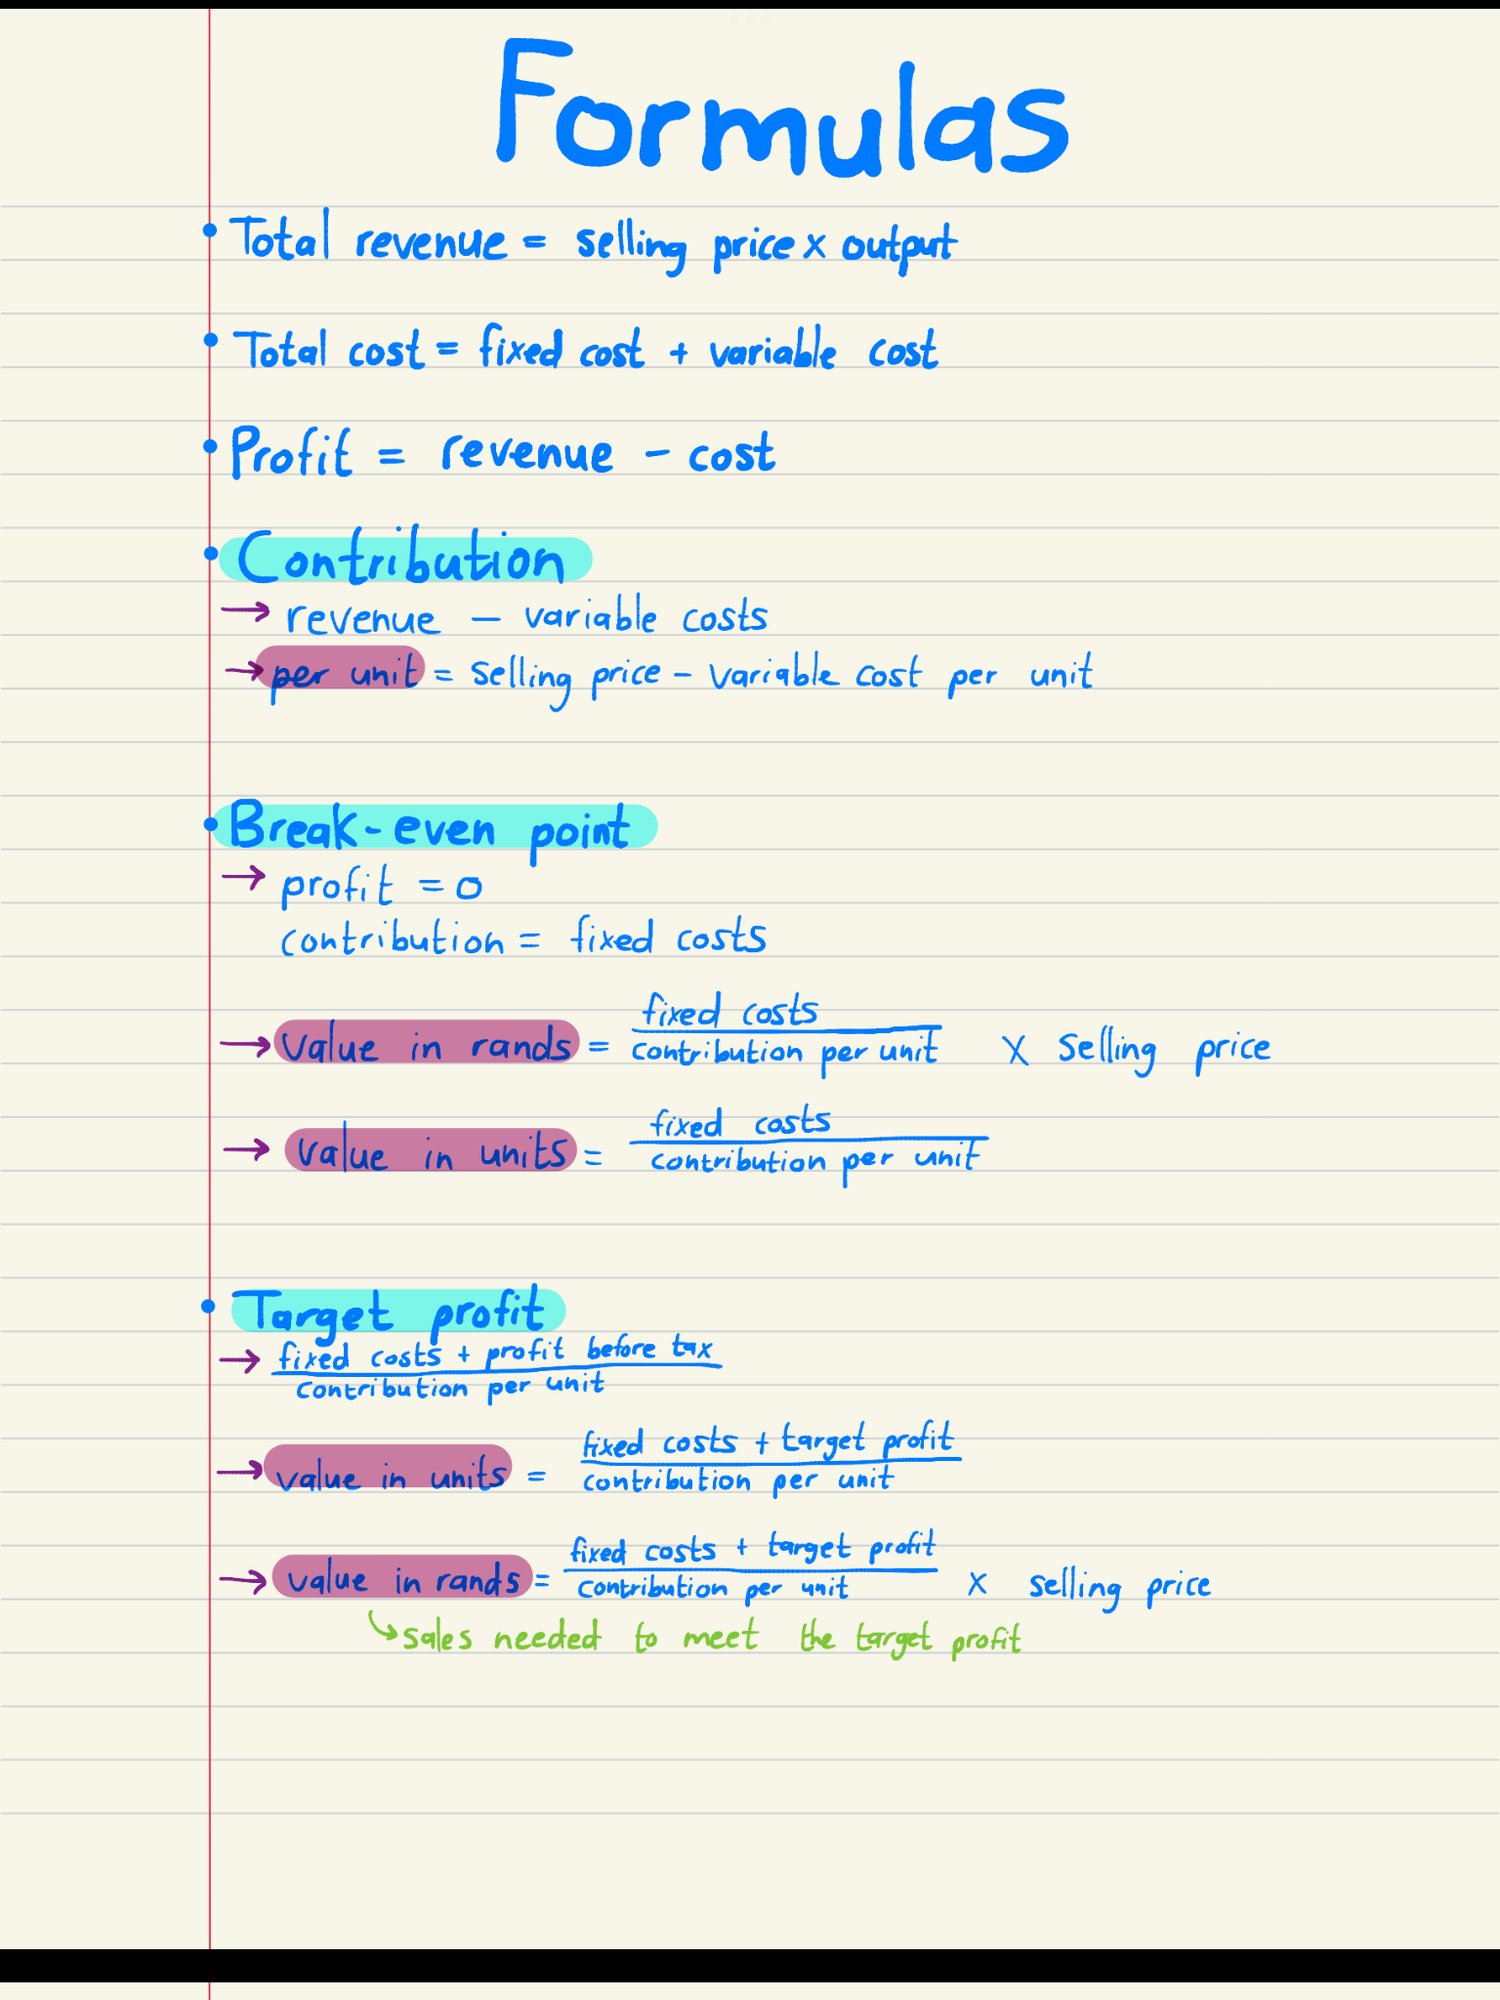 Formulas
• Total revenue = selling price x output
• Total cost = fixed cost + variable cost
• Profit = revenue - cost
• Contribution
→ revenue - variable costs
→ per unit = selling price - variable cost per unit
• Break-even point
→ profit = 0
contribution = fixed costs
fixed costs
→ value in rands = contribution per unit x selling price
fixed costs
→ value in units = contribution per unit
• Target profit
→ fixed costs + profit before tax
contribution per unit
fixed costs + target profit
→ value in units = contribution per unit
fixed costs + target profit
→ value in rands = contribution per unit x selling price
↳ sales needed to meet the target profit